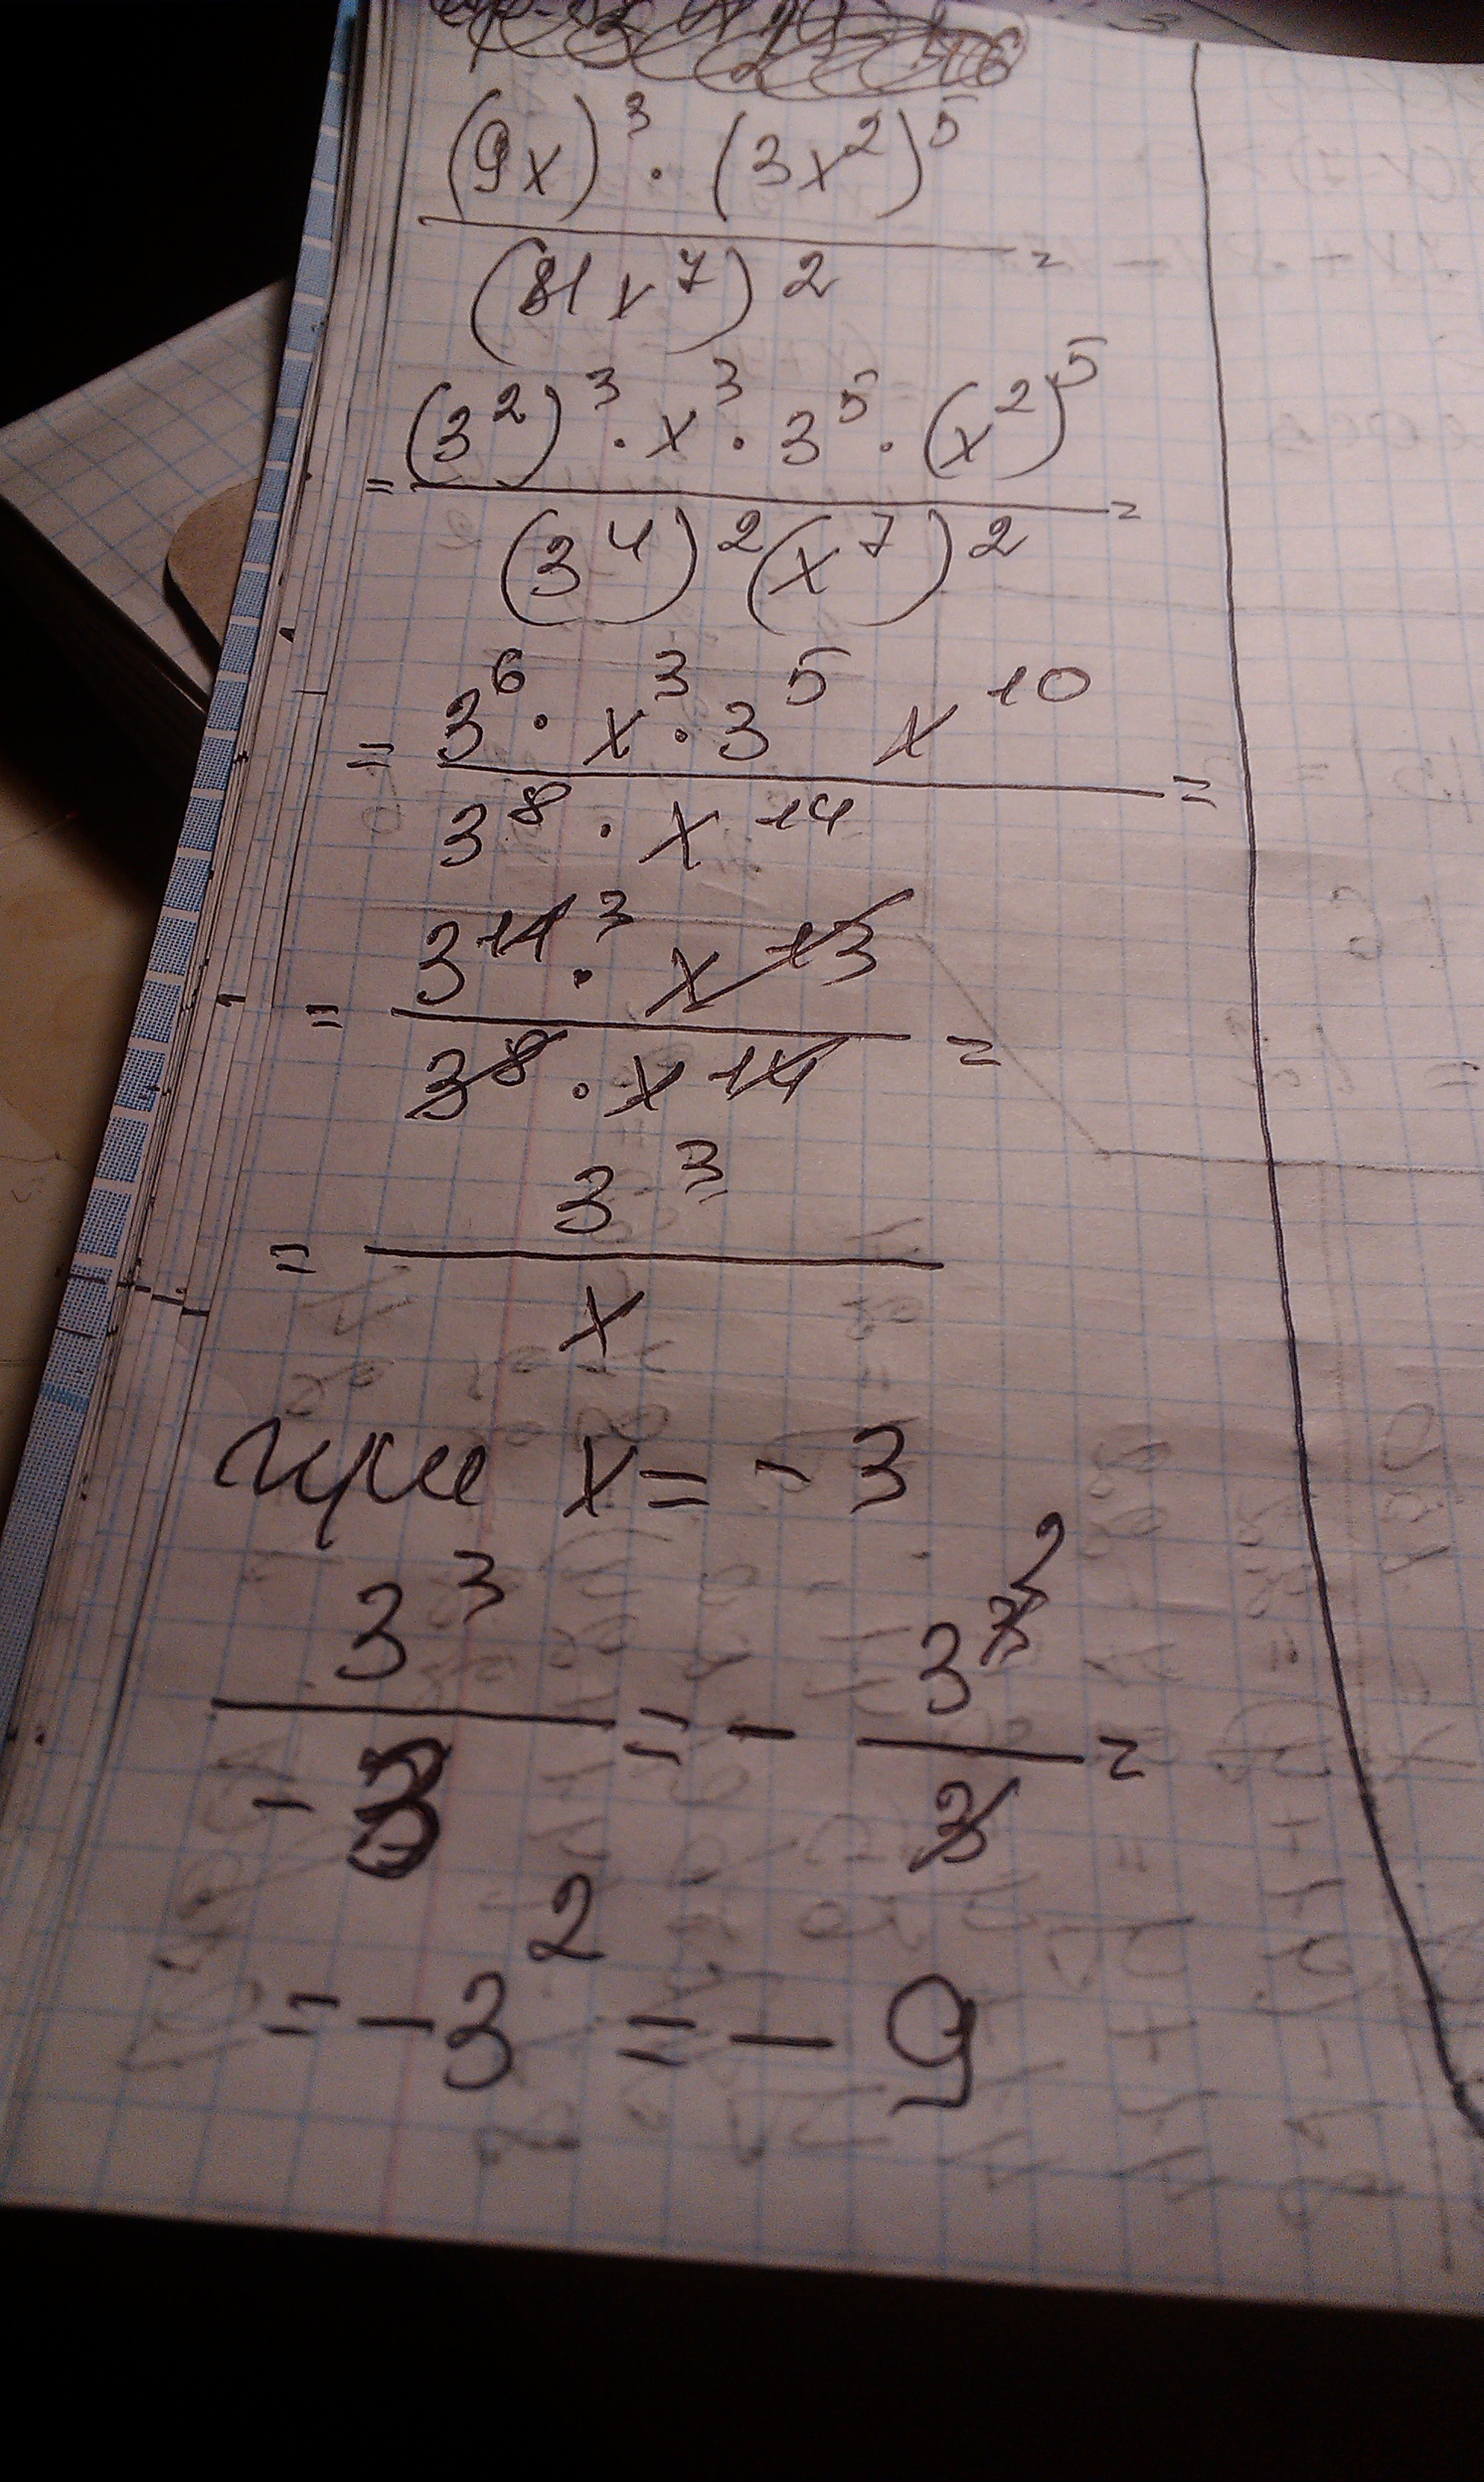 (9x)³ · (3x²)⁵
(81x⁷)² =
= (3²)³ · x³ · 3⁵ · (x²)⁵ =
(3⁴)² (x⁷)²
= 3⁶ · x³ · 3⁵ x¹⁰ =
3⁸ · x¹⁴
= 3¹¹ ³ · x¹³ =
3⁸ · x¹⁴
= 3³
x
при x = - 3
3³ = - 3³ ² =
- 3 3
= - 3² = - 9